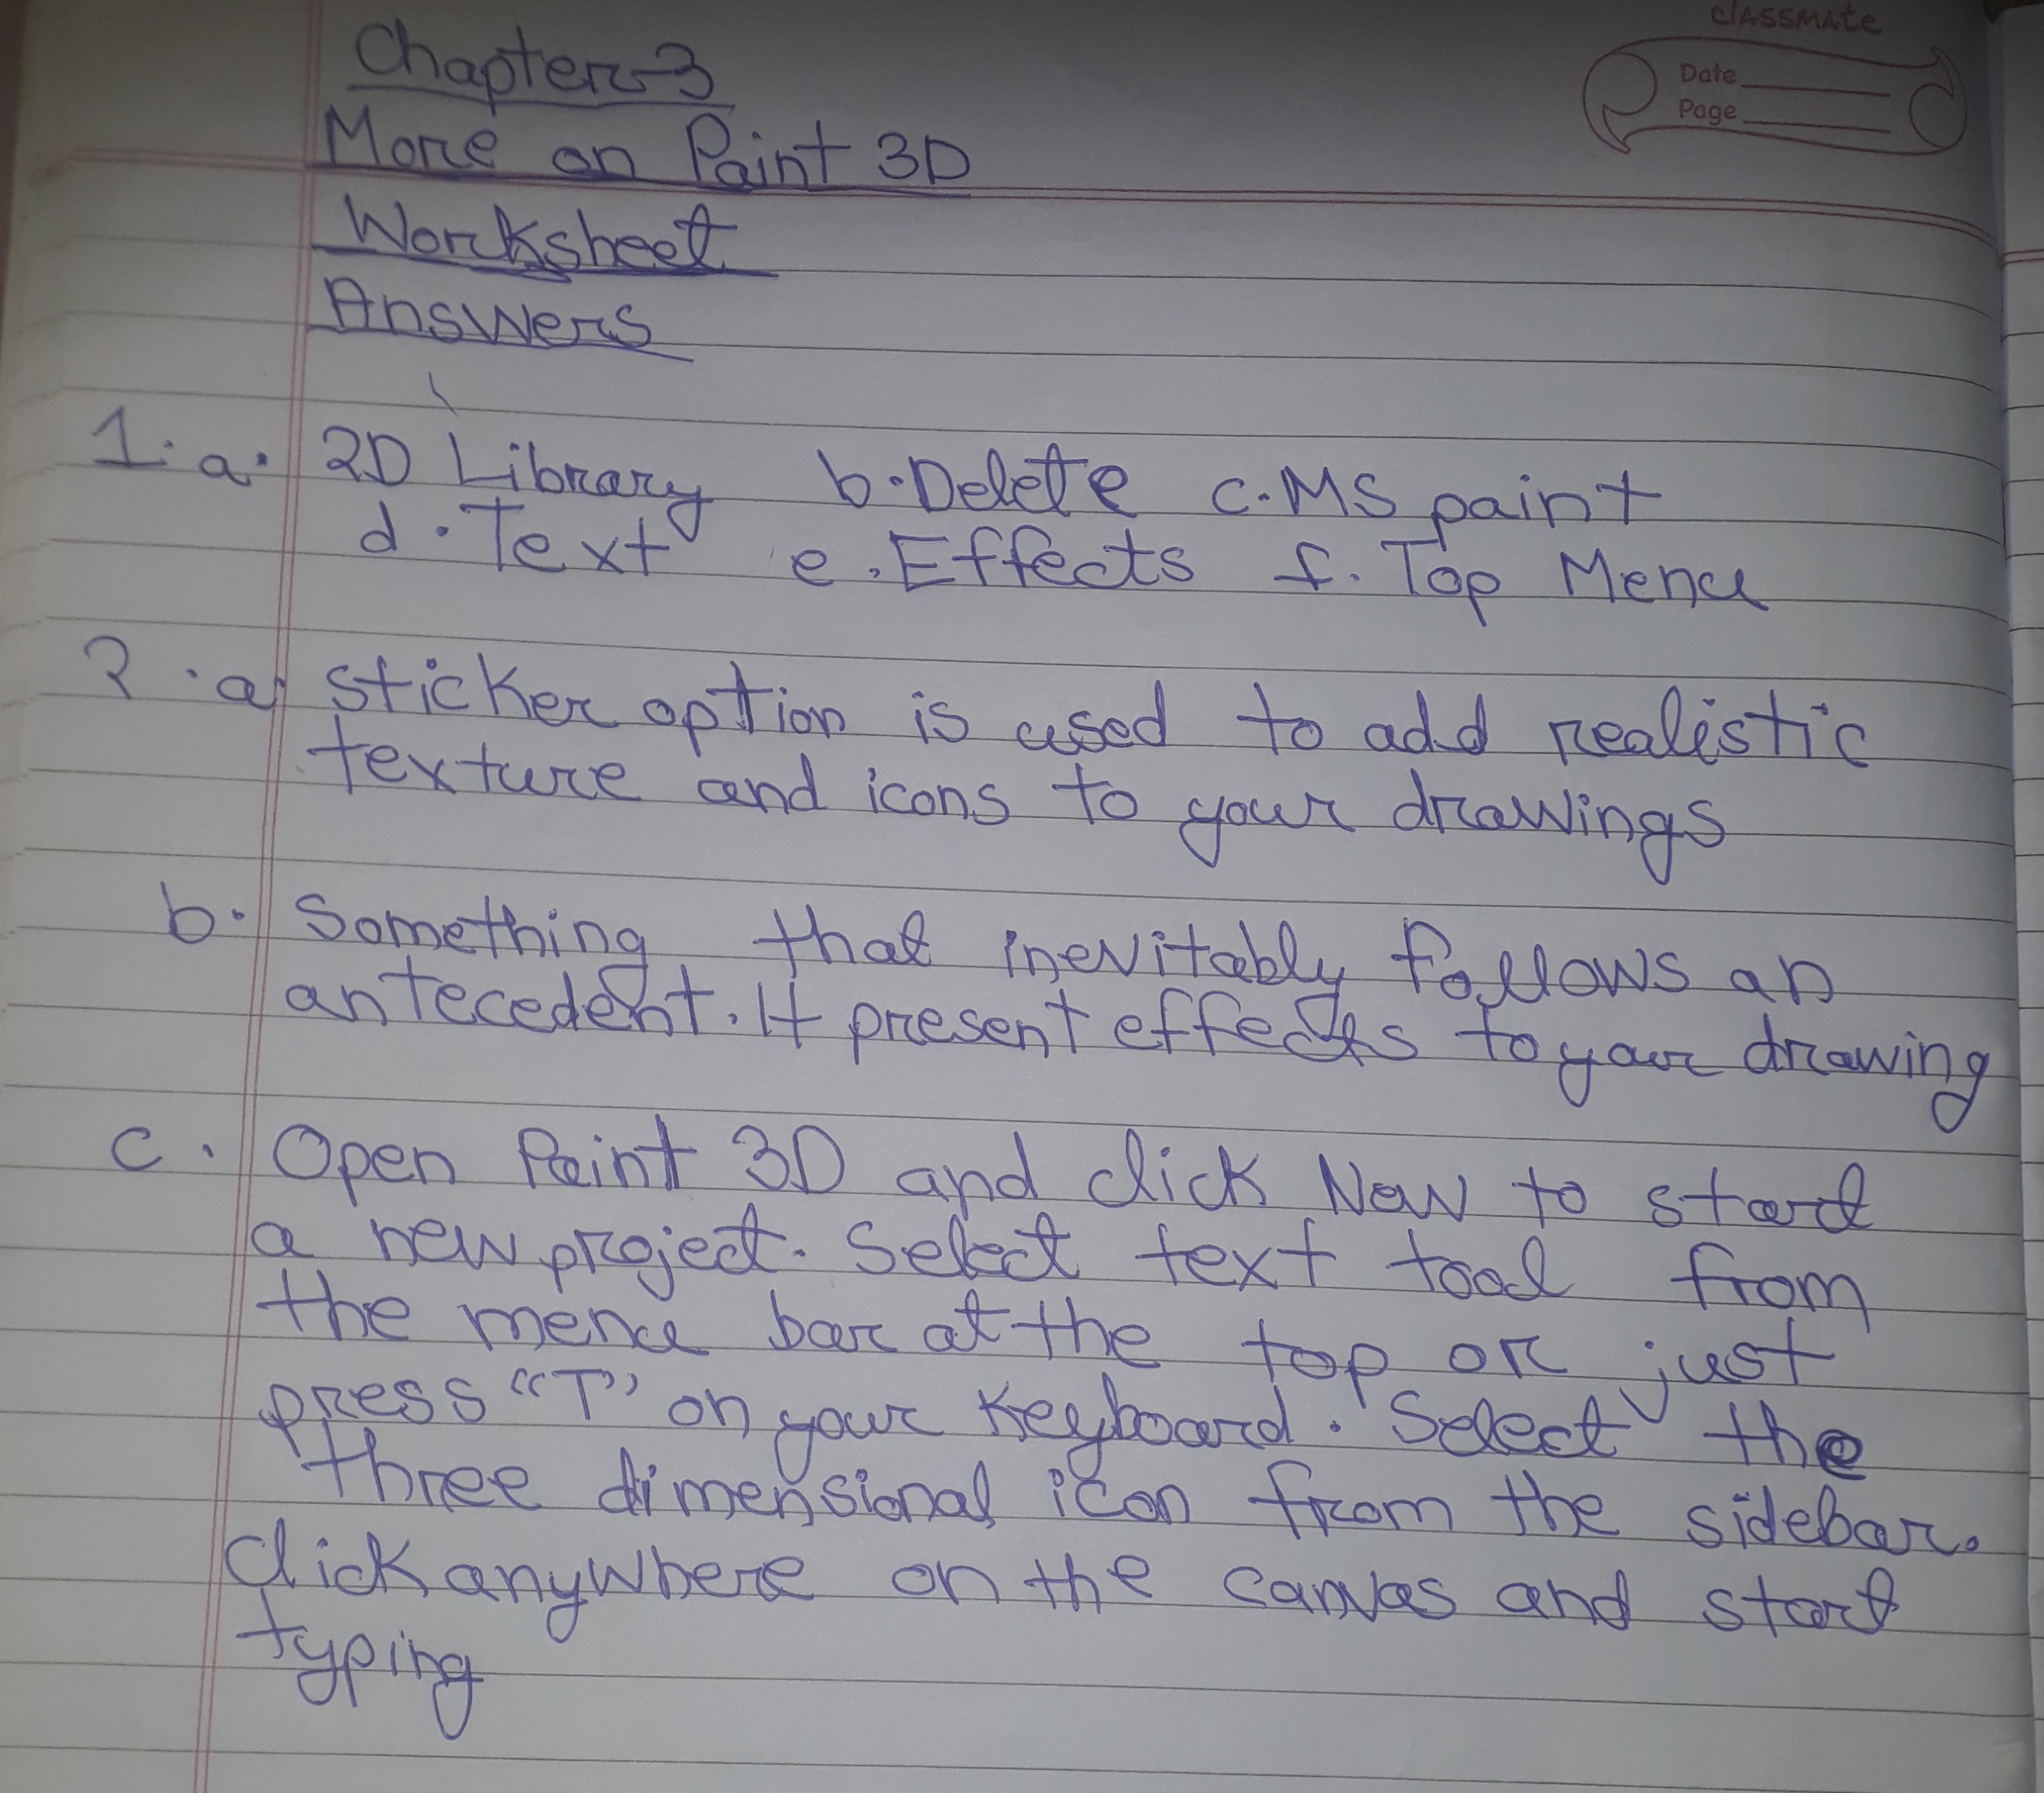 classmate
Date
Page
Chapter-3
More on Paint 3D
Worksheet
Answers
1. a. 2D Library b. Delete c. MS paint
d. Text e. Effects f. Top Menu
2. a. Sticker option is used to add realistic
texture and icons to your drawings
b. Something that inevitably follows an
antecedent. It present effects to your drawing
c. Open Paint 3D and click New to start
a new project. Select text tool from
the menu bar at the top or just
press "T" on your keyboard. Select the
three dimensional icon from the sidebar.
Click anywhere on the canvas and start
typing